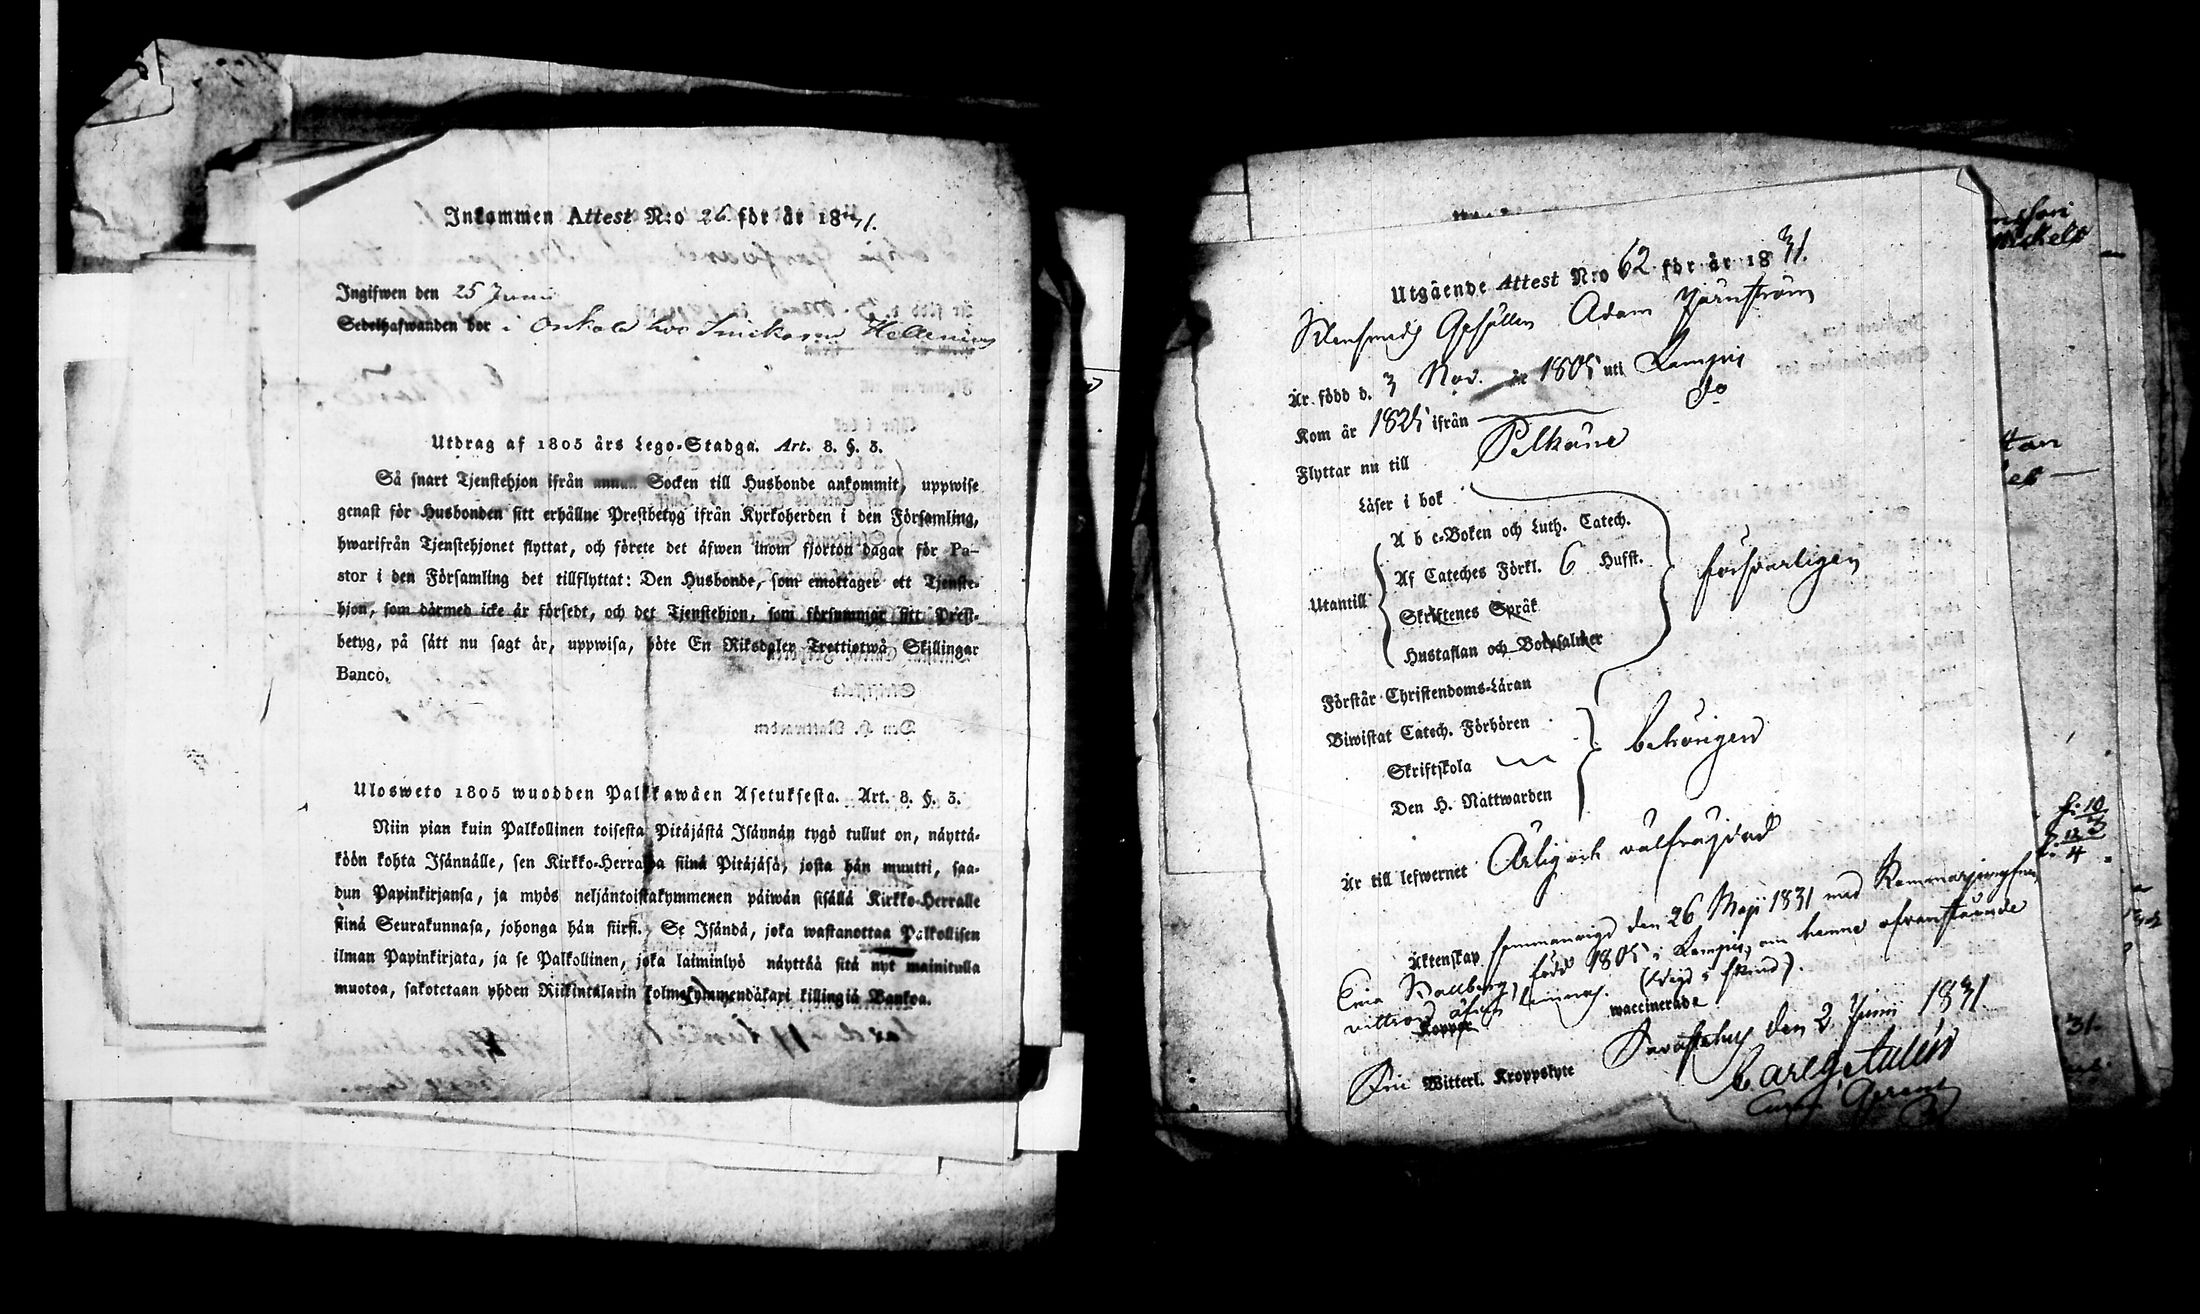 Inkommen Attest N:o 26 för år 1831.
Ingifwen den 25 Juni
Sedelhafwanden bor i Onkala hos Snickaren Hellenius
Utdrag af 1805 års Lego-Stadga. Art. 8. §. 3.
Så snart Tjenstehjon ifrån annan Socken till Husbonde ankommit, uppwise
genast för Husbonden sitt erhållne Prestbetyg ifrån Kyrkoherden i den Församling,
hwarifrån Tjenstehjonet flyttat, och förete det äfwen inom fjorton dagar för Pa-
stor i den Församling det tillflyttat: Den Husbonde, som emottager ett Tjenste-
hjon, som därmed icke är försedt, och det Tjenstehjon, som försummar sitt Prest-
betyg, på sätt nu sagt är, uppwisa, böte En Riksdaler Trettiotwå Skillingar
Banco.
Ulosweto 1805 wuodden Palkkawäen Asetuksesta. Art. 8. §. 3.
Niin pian kuin Palkollinen toisesta Pitäjästä Isännän tygö tullut on, näyttä-
köön kohta Isännälle, sen Kirkko-Herralda siinä Pitäjäsä, josta hän muutti, saa-
dun Papinkirjansa, ja myös neljäntoistakymmenen päiwän sisällä Kirkko-Herralle
siinä Seurakunnasa, johonga hän siirsi. Se Isändä, joka wastanottaa Palkollisen
ilman Papinkirjata, ja se Palkollinen, joka laiminlyö näyttää sitä nyt mainitulla
muotoa, sakotetaan yhden Riikintalarin kolmekymmendäkaxi killingiä Bankoa.
Utgående Attest N:o 62 för år 1831.
Klensmeds Gesällen Adam Järnström
Är född d. 3 Nov. år 1805 uti Lampis
Kom år 1825 ifrån do
Flyttar nu till Pelkäne
Läser i bok
A b c-Boken och Luth. Catech.
Utantill Af Cateches Förkl. 6 Hufst. försvarligen
Skriftenes Språk
Hustaflan och Botpsalmer
Förstår Christendoms-Läran
Biwistat Catech. Förhören
Skriftskola behörigen
Den H. Nattwarden
Är till lefwernet Ärlig och välfräjdad
Äktenskap sammanvigd den 26 Maji 1831 med Kammarjungfrun
född 1805 i Lampis, om henne ofvanstående
vittnord äfven lämnas.
Koppor waccinerade
Fri Witterl. Kroppslyte
Tavastehus den 2 Junii 1831